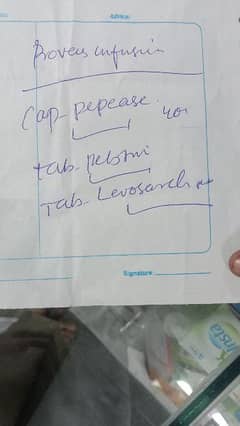 Advice:
Provas infusion
Cap- pepease.
40x
Tab- pelstri
Tab- Levosarch
Signature
insta